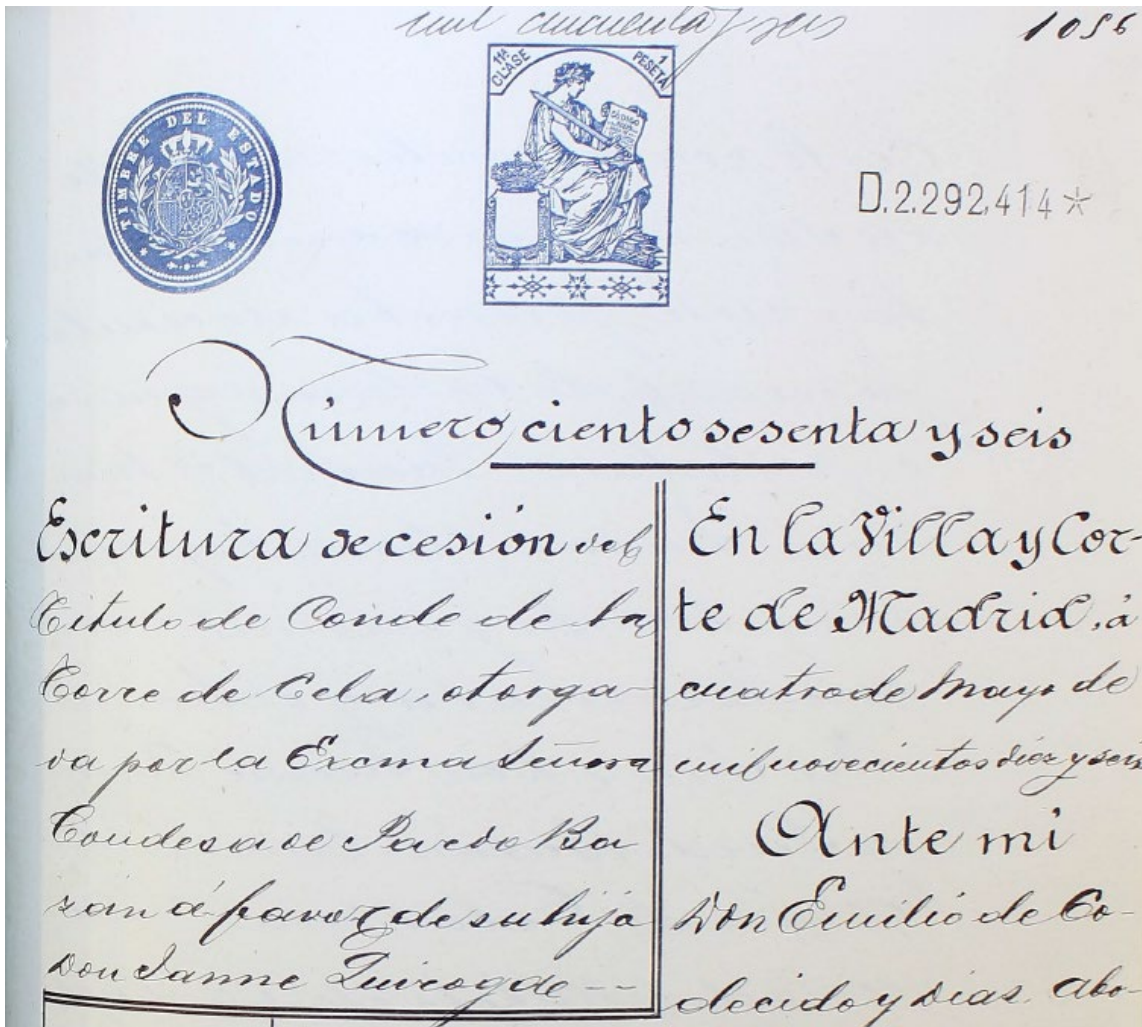 mil cincuenta y seis
1056
11ª CLASE
1 PESETA
TIMBRE DEL ESTADO
CÓDIGO
D.2.292.414*
Número ciento sesenta y seis
Escritura de cesión del
Título de Conde de la
Torre de Cela, otorga
da por la Excma Señora
Condesa de Pardo Ba
zán á favor de su hijo
Don Jaime Quiroga de --
En la Villa y Cor-
te de Madrid, á
cuatro de Mayo de
mil novecientos diez y seis
Ante mi
Don Emilio de Co-
decido y Diaz, abo-